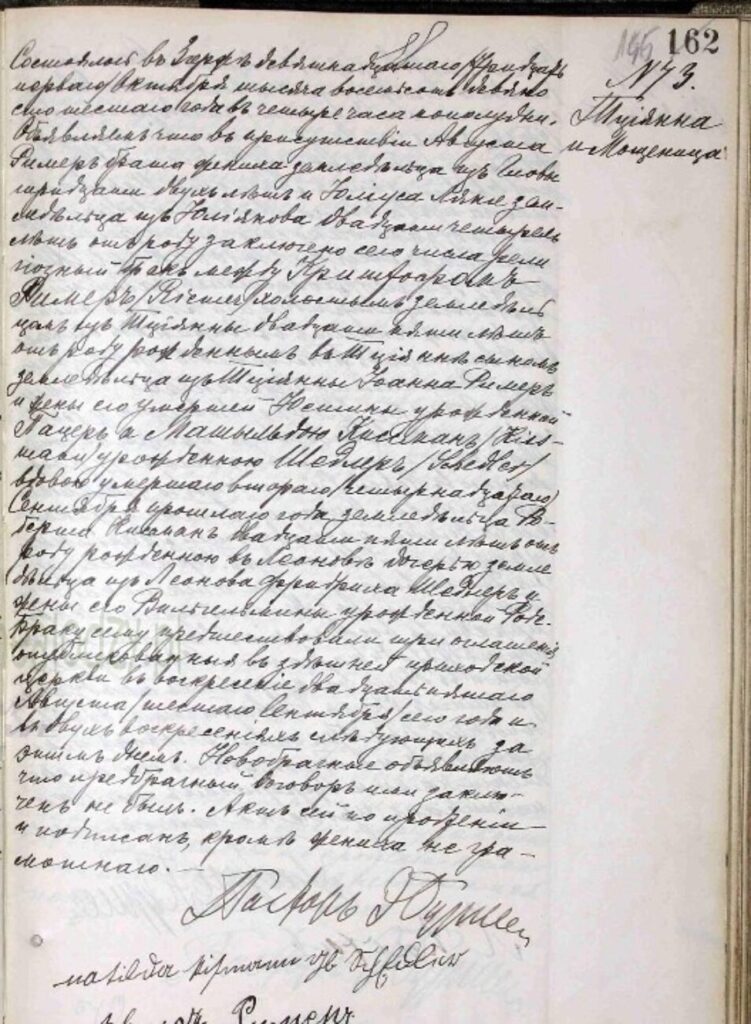 162
165
N 73.
Тціянна
и Мощеница
Состоялось въ девятнадцатаго /тридцать
перваго/ Октября тысяча восемьсотъ девяно
сто шестаго года въ четыре часа пополудни.
Объявляемъ что въ присутствіи Августа
Римеръ брата жениха земледѣльца изъ
тридцати двухъ лѣтъ и Юліуса зем-
ледѣльца изъ Юліянова двадцати четырехъ
лѣтъ отъ роду заключенъ сего числа рели
гіозный бракъ между Криштофомъ
Римеръ /Riemer/ холостымъ земледѣль
цемъ изъ Тціянны двадцати пяти лѣтъ
отъ роду рожденнымъ въ Тціяннѣ сыномъ
земледѣльца изъ Тціянны Іоанна Римеръ
и жены его умершей Юстины урожденной
и Матыльдою Кисманъ /Kiss-
mann/ урожденною Шедлеръ /Schedler/
вдовою умершаго втораго /четырнадцатаго/
Сентября прошлаго года земледѣльца Ро-
берта Кисманъ двадцати пяти лѣтъ отъ
роду рожденною въ Леоновѣ дочерью земле
дѣльца изъ Леонова Фридриха Шедлеръ и
жены его Вильгельмины урожденной
Браку сему предшествовали три оглашенія
опубликованныя въ здѣшней приходской
церкви въ воскресеніе двадцать пятаго
Августа /шестаго Сентября/ сего года и
въ двухъ воскресеніяхъ слѣдующихъ за
этимъ днемъ. Новобрачные объявляютъ
что предбрачный договоръ ими заклю-
ченъ не былъ. Актъ сей по прочтеніи
и подписанъ, кромѣ жениха негра-
мотнаго.
Пасторъ
Schedler
Римеръ